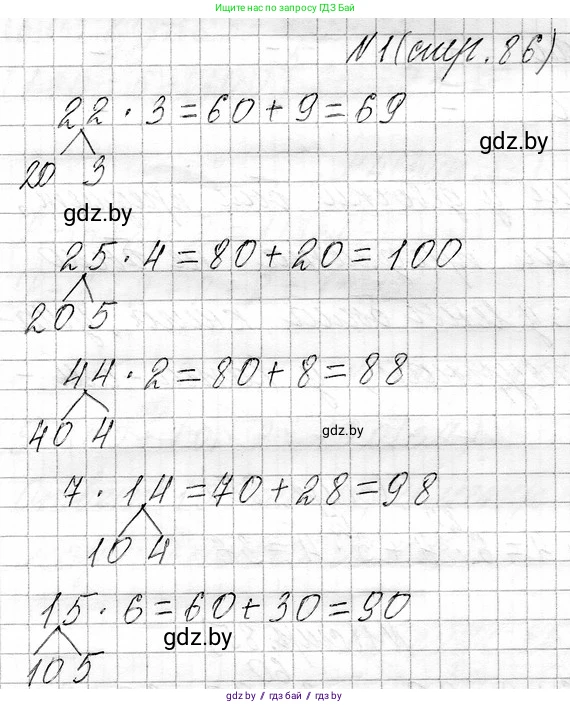 Ищите нас по запросу ГДЗ Бай
N 1 (стр. 86)
22 · 3 = 60 + 9 = 69
gdz.by
20 3
gdz.by
25 · 4 = 80 + 20 = 100
20 5
44 · 2 = 80 + 8 = 88
40 4
gdz.by
7 · 14 = 70 + 28 = 98
10 4
15 · 6 = 60 + 30 = 90
gdz.by
10 5
gdz.by / гдз бай / gdz.by